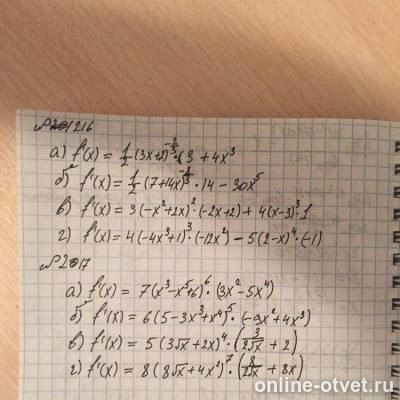 №201216
а) f'(x) = 1/2 (3x+2)^(-2/3) · 3 + 4x³
б) f'(x) = 1/2 (7+14x)^(-2/3) · 14 - 30x⁵
в) f'(x) = 3(-x²+2x)² · (-2x+2) + 4(x-3)³ · 1
г) f'(x) = 4(-4x³+1)³ · (-12x²) - 5(2-x)⁴ · (-1)
№2017
а) f'(x) = 7(x³-x⁵+6)⁶ · (3x²-5x⁴)
б) f'(x) = 6(5-3x³+x⁴)⁵ · (-9x²+4x³)
в) f'(x) = 5(3√x+2x)⁴ · (3/2√x + 2)
г) f'(x) = 8(8√x+4x²)⁷ · (8/2√x + 8x)
online-otvet.ru